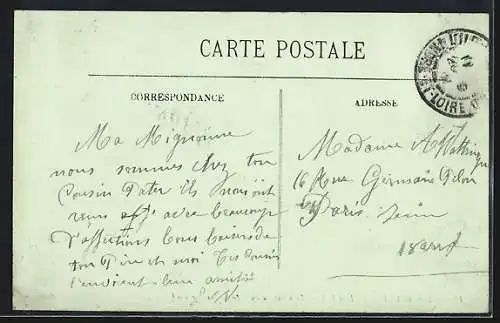 CARTE POSTALE
CORRESPONDANCE
ADRESSE
LOIRE
Ma Mignonne
nous sommes chez ton
Cousin ils nous ont
reçus avec beaucoup
d'affections bons baisers de
ton et moi tes cousins
t'envoient leur amitié
Madame A
16 Rue Germain Pilon
Paris Seine
18 arrt